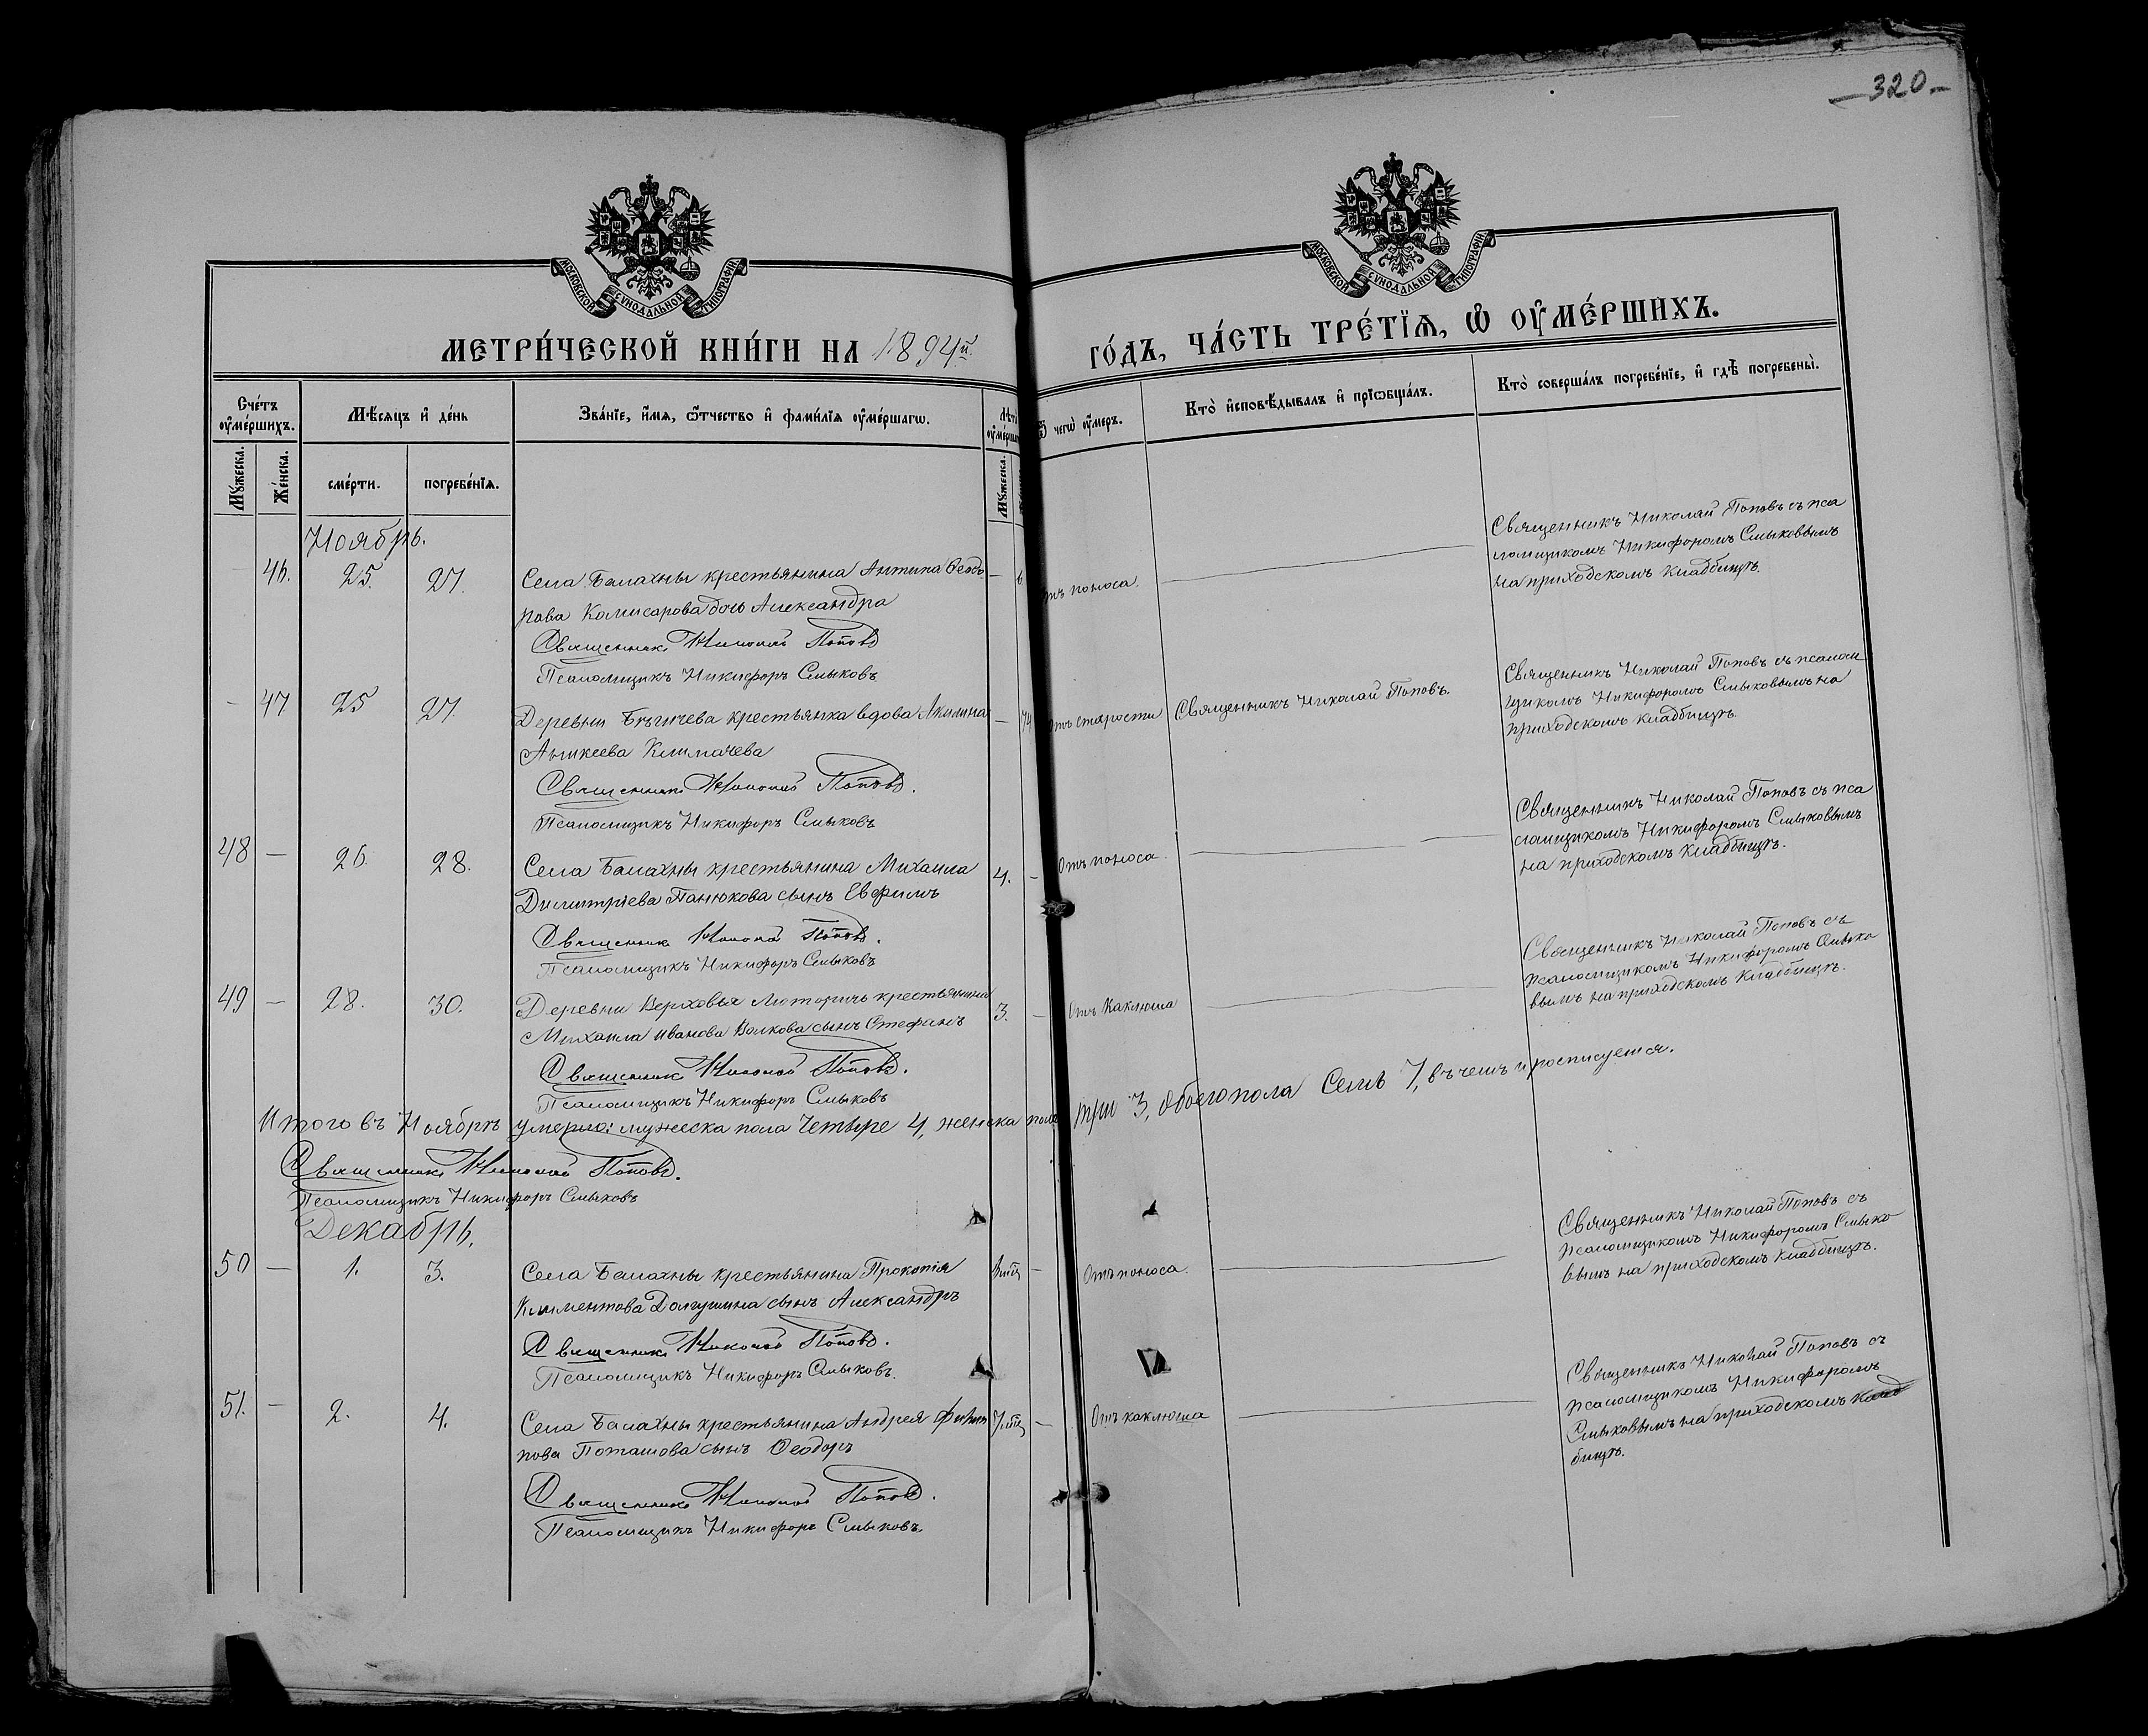 320
МОСКОВСКОЙ СѴНОДАЛЬНОЙ ТИПОГРАФІИ.
МОСКОВСКОЙ СѴНОДАЛЬНОЙ ТИПОГРАФІИ.
МЕТРИ́ЧЕСКОЙ КНИ́ГИ НА 1894й
ГО́ДЪ, ЧА́СТЬ ТРЕ́ТІѦ, Ѡ҆ ОУ҆МЕ́РШИХЪ.
Сче́тъ оу҆ме́ршихъ.
Мꙋ́жеска.
Же́нска.
Мѣ́сѧцъ и҆ де́нь
сме́рти.
погребе́нїѧ.
Зва́нїе, и҆́мѧ, ѻ҆́тчество и҆ фами́лїѧ оу҆ме́ршагѡ.
Лѣ́та оу҆ме́ршаг
Мꙋ́жеска.
Ѿ чегѡ̀ оу҆́меръ.
Кто̀ и҆сповѣ́дывалъ и҆ прїѡбща́лъ.
Кто̀ соверша́лъ погребе́нїе, и҆ гдѣ̀ погребены̀.
Ноябрь.
46. 25. 27. Села Балахны крестьянина Антипа Ѳеодо
рова Комисарова дочь Александра
Священникъ Николай Поповъ
Псаломщикъ Никифоръ Смыковъ
— 6 отъ поноса.
Священникъ Николай Поповъ съ пса
ломщикомъ Никифоромъ Смыковымъ
на приходскомъ кладбищѣ.
— 47 25 27. Деревни крестьянка вдова Акилина
Климачева
Священникъ Николай Поповъ.
Псаломщикъ Никифоръ Смыковъ
— 74 отъ старости Священникъ Николай Поповъ.
Священникъ Николай Поповъ съ псалом
щикомъ Никифоромъ Смыковымъ на
приходскомъ кладбищѣ.
48 — 26. 28. Села Балахны крестьянина Михаила
Димитріева Панюкова сынъ Евфимъ
Священникъ Николай Поповъ.
Псаломщикъ Никифоръ Смыковъ
4. — Отъ поноса.
Священникъ Николай Поповъ съ пса
ломщикомъ Никифоромъ Смыковымъ
на приходскомъ кладбищѣ.
49 — 28. 30. Деревни Верховья Люторичь крестьянина
Михаила Иванова Волкова сынъ Стефанъ
Священникъ Николай Поповъ.
Псаломщикъ Никифоръ Смыковъ
3. — Отъ каклюша
Священникъ Николай Поповъ съ
псаломщикомъ Никифоромъ Смыко
вымъ на приходскомъ кладбищѣ.
Итого въ Ноябрѣ умерло: мужеска пола Четыре 4, женска пола три 3, обоего пола Семь 7, въ чемъ и росписуемся.
Священникъ Николай Поповъ.
Псаломщикъ Никифоръ Смыковъ
Декабрь.
50 — 1. 3. Села Балахны крестьянина Прокопія
Климентова Долгушина сынъ Александръ
Священникъ Николай Поповъ.
Псаломщикъ Никифоръ Смыковъ.
— Отъ поноса.
Священникъ Николай Поповъ съ
псаломщикомъ Никифоромъ Смыко
вымъ на приходскомъ кладбищѣ.
51. — 2. 4. Села Балахны крестьянина Андрея Филип
пова Поташова сынъ Ѳеодоръ
Священникъ Николай Поповъ.
Псаломщикъ Никифоръ Смыковъ.
— Отъ каклюша
Священникъ Николай Поповъ съ
псаломщикомъ Никифоромъ
Смыковымъ на приходскомъ клад
бищѣ.